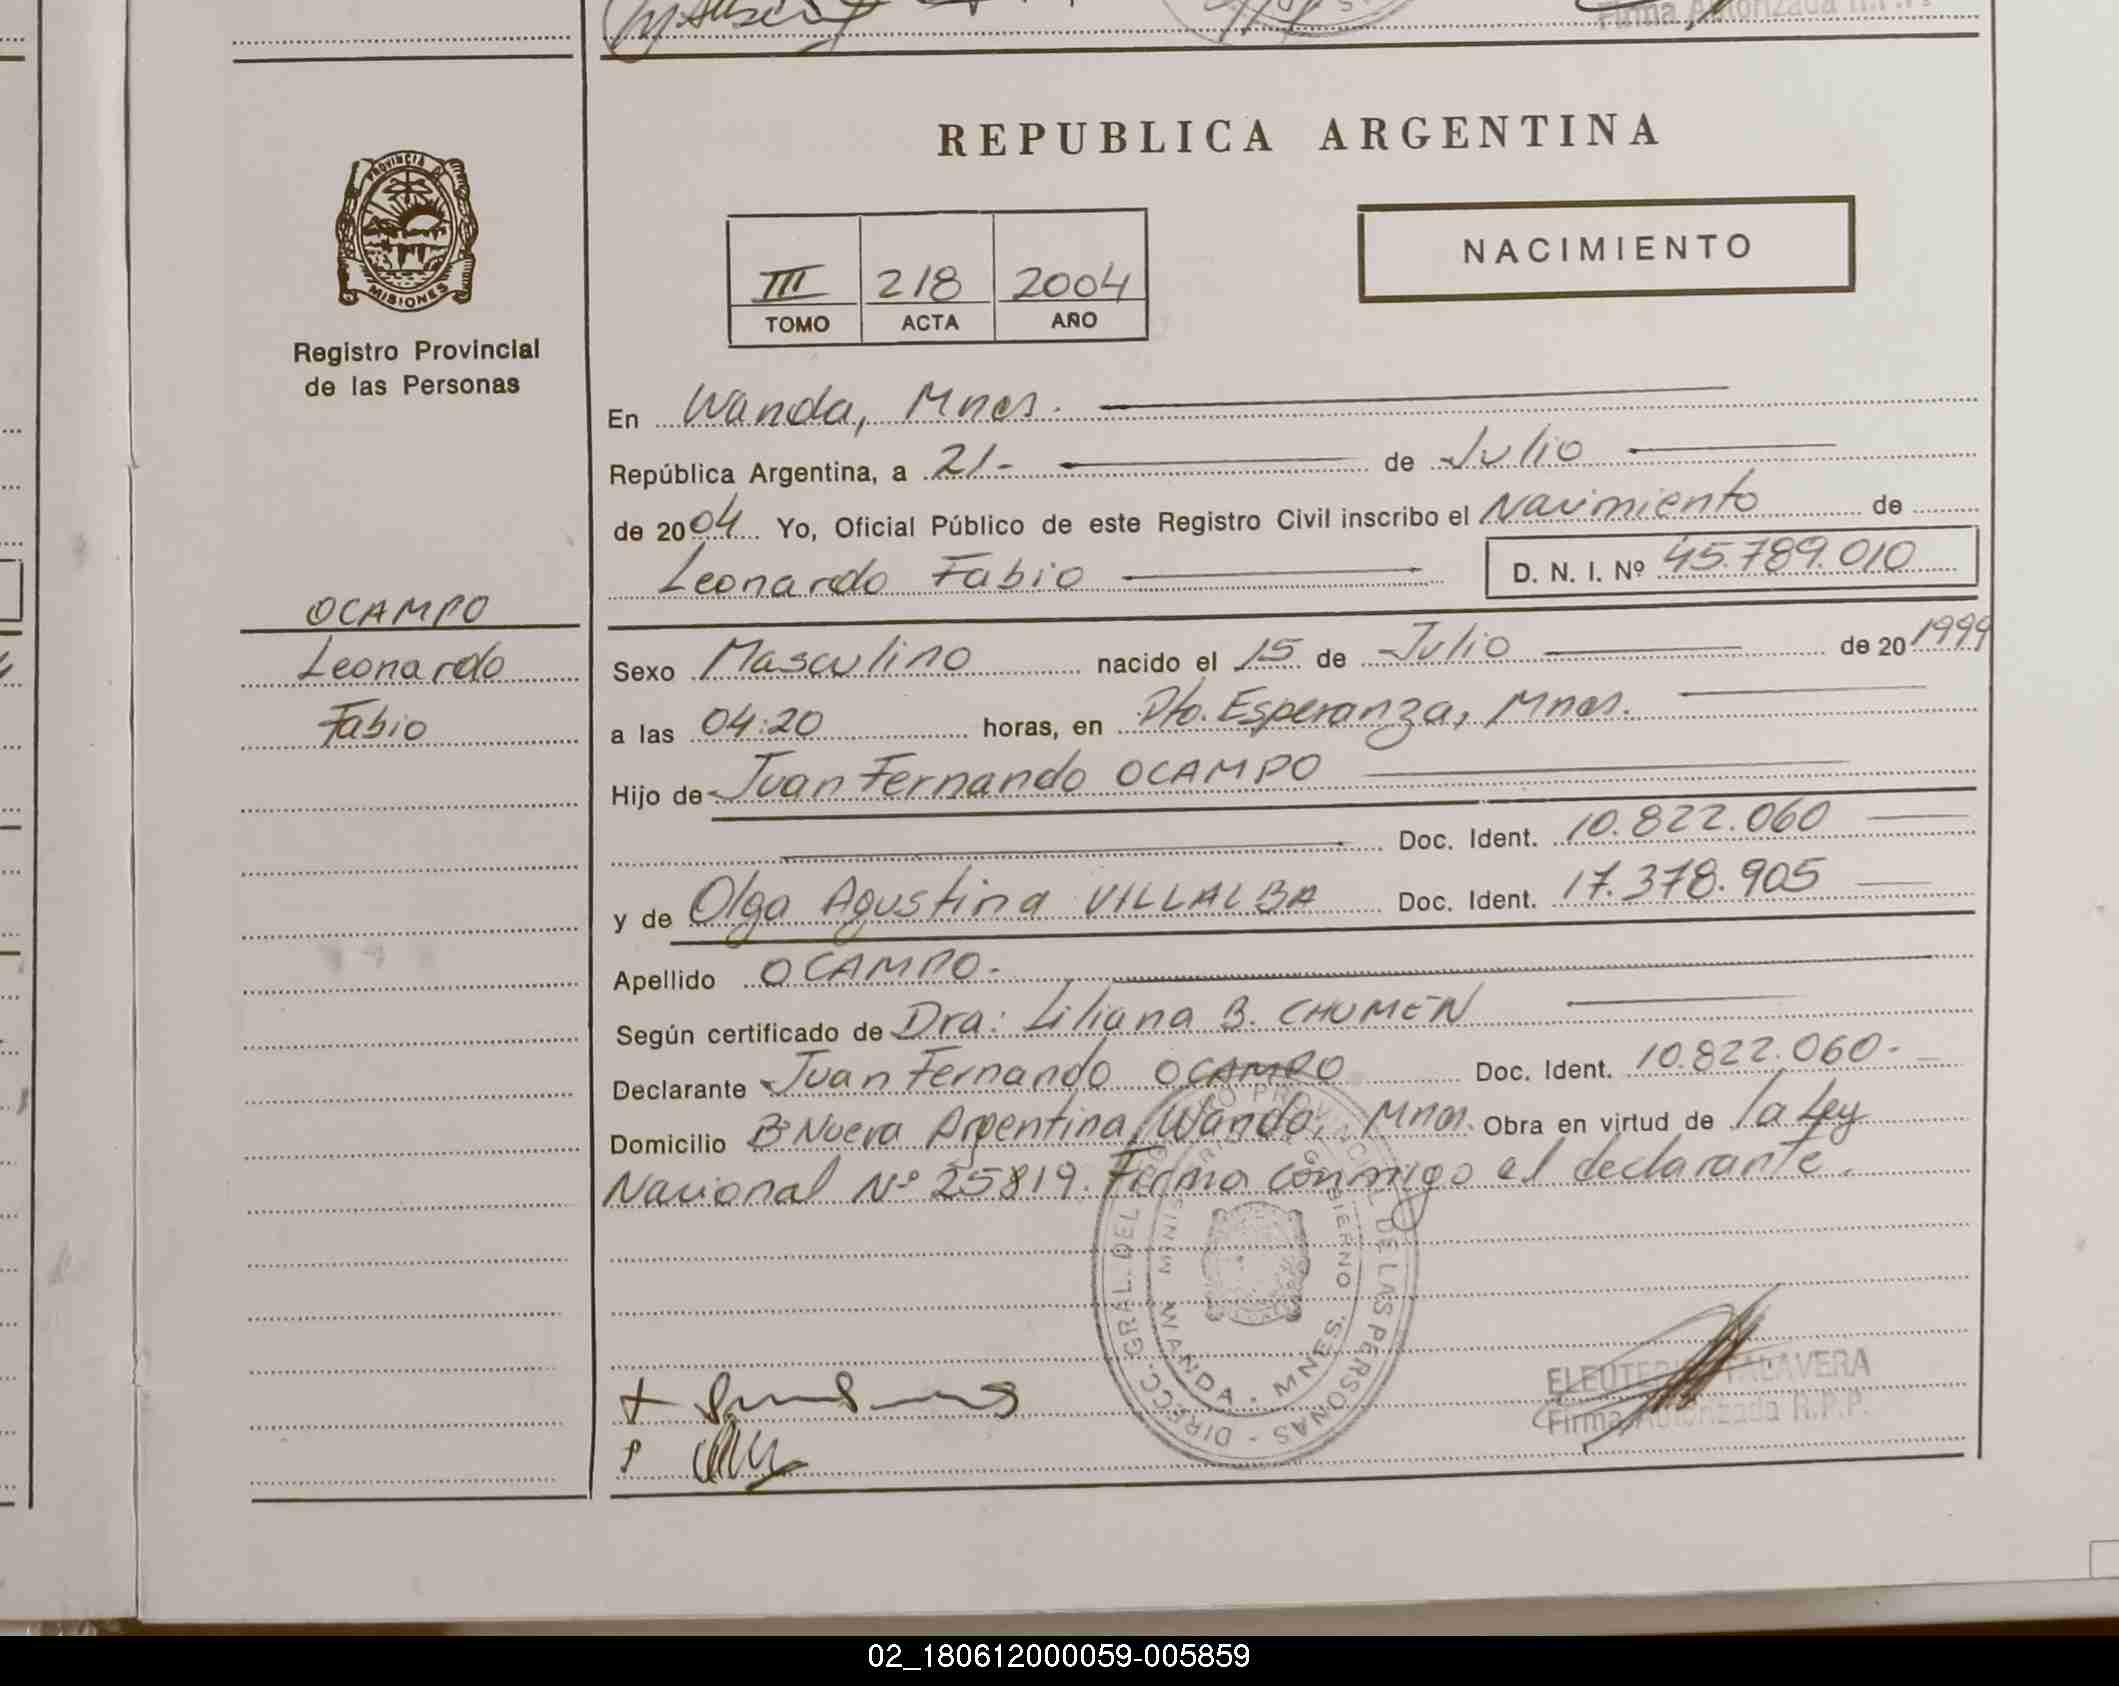 Firma Autorizada R.P.P.
PROVINCIA DE
MISIONES
Registro Provincial
de las Personas
OCAMPO
Leonardo
Fabio
REPUBLICA ARGENTINA
NACIMIENTO
III 218 2004
TOMO ACTA AÑO
En Wanda, Mnes.
República Argentina, a 21- de Julio
de 2004 Yo, Oficial Público de este Registro Civil inscribo el Nacimiento de
Leonardo Fabio D. N. I. Nº 45.789.010
Sexo Masculino nacido el 15 de Julio de 20 1999
a las 04:20 horas, en Pto. Esperanza, Mnes.
Hijo de Juan Fernando OCAMPO
Doc. Ident. 10.822.060
y de Olga Agustina VILLALBA Doc. Ident. 17.378.905
Apellido OCAMPO.-
Según certificado de Dra: Liliana B. CHUMEN
Declarante Juan Fernando OCAMPO Doc. Ident. 10.822.060.-
Domicilio Bº Nueva Argentina, Wanda, Mnes. Obra en virtud de la Ley
Nacional Nº 25819. Firma conmigo el declarante.
DIRECC. GRAL. DEL REGISTRO PROVINCIAL DE LAS PERSONAS
MINISTERIO GOBIERNO
WANDA - MNES.
ELEUTERIO TALAVERA
Firma Autorizada R.P.P.
02_180612000059-005859